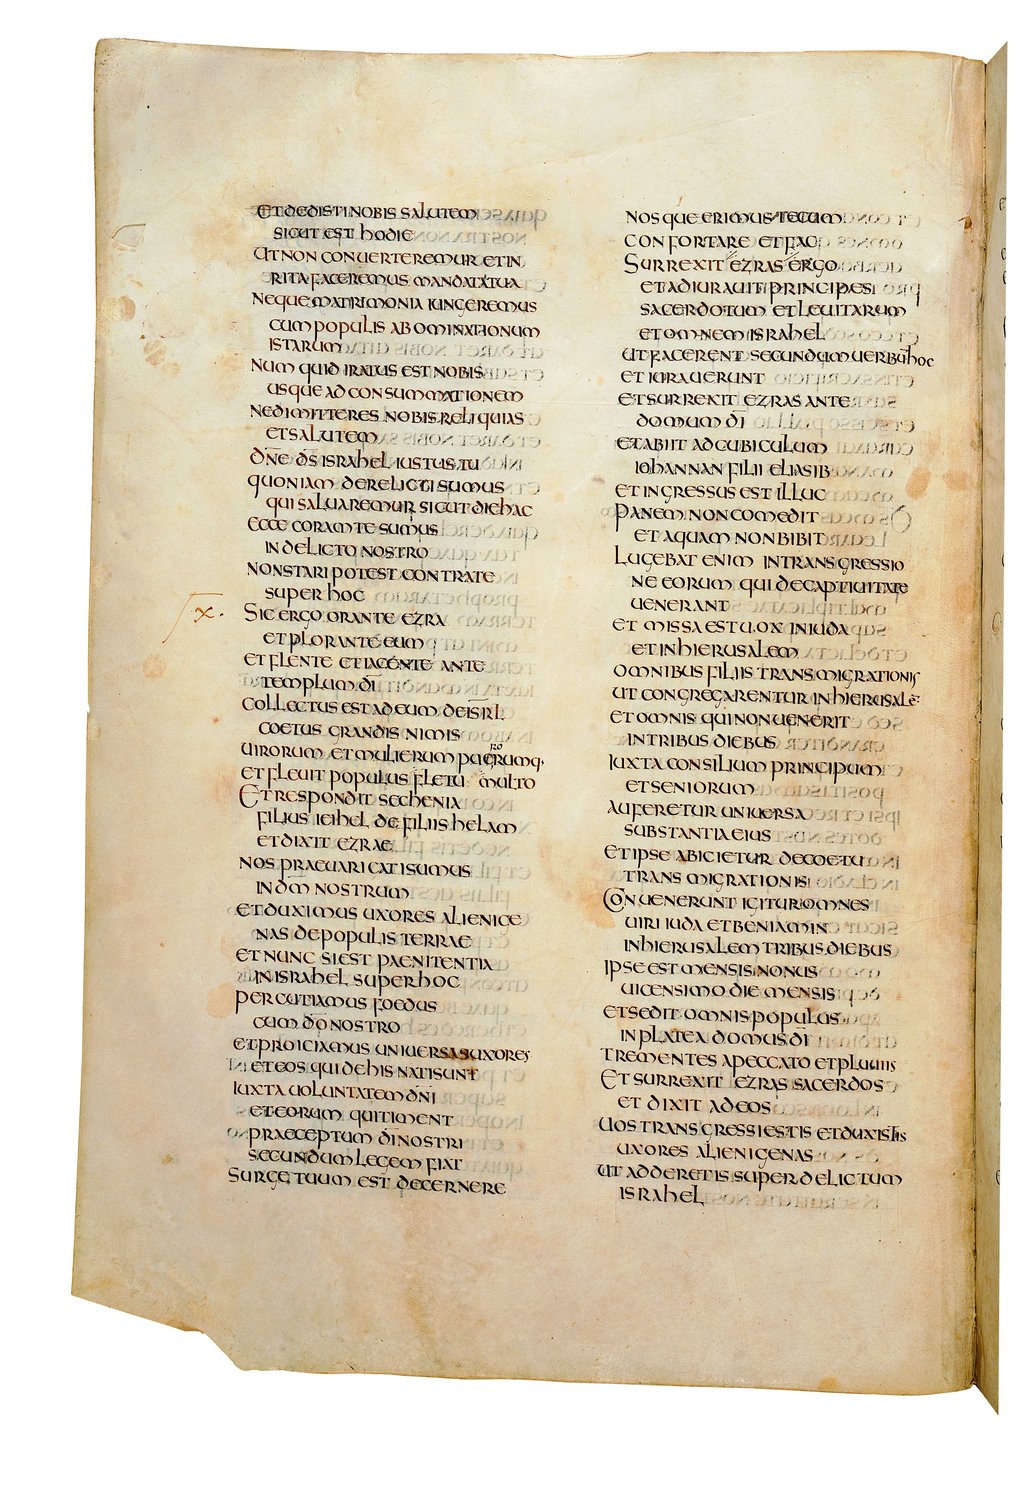 ET DEDISTI NOBIS SALUTEM
SICUT EST hODIE
UT NON CONUERTEREMUR ET IN
RITA FACEREMUS MANDATA TUA
NEQUE MATRIMONIA IUNGEREMUS
CUM POPULIS ABOMINATIONUM
ISTARUM
NUMQUID IRATUS ES NOBIS
USQUE AD CONSUMMATIONEM
NE DIMITTERES NOBIS RELIQUIAS
ET SALUTEM
DN̄E D̄S ISRAHEL IUSTUS TU
QUONIAM DERELICTI SUMUS
QUI SALUAREMUR SICUT DIE HAC
ECCE CORAM TE SUMUS
IN DELICTO NOSTRO
NON STARI POTEST CONTRA TE
SUPER HOC
X·
SIC ERGO ORANTE EZRA
ET PLORANTE EUM
ET FLENTE ET IACENTE ANTE
TEMPLUM D̄I
COLLECTUS EST AD EUM DE ISR̄L
COETUS GRANDIS NIMIS
UIRORUM ET MULIERUM PUERORUMQ·
ET FLEUIT POPULUS FLETU MULTO
ET RESPONDIT SECHENIA
FILIUS IEIHEL DE FILIIS HELAM
ET DIXIT EZRAE
NOS PRAEUARICATI SUMUS
IN D̄M NOSTRUM
ET DUXIMUS UXORES ALIENIGE
NAS DE POPULIS TERRAE
ET NUNC SI EST PAENITENTIA
IN ISRAHEL SUPER HOC
PERCUTIAMUS FOEDUS
CUM D̄O NOSTRO
ET PROICIAMUS UNIUERSAS UXORES
ET EOS QUI DE HIS NATI SUNT
IUXTA UOLUNTATEM DN̄I
ET EORUM QUI TIMENT
PRAECEPTUM D̄I NOSTRI
SECUNDUM LEGEM FIAT
SURGE TUUM EST DECERNERE
NOSQUE ERIMUS TECUM
CONFORTARE ET FAC
SURREXIT EZRAS ERGO
ET ADIURAUIT PRINCIPES
SACERDOTUM ET LEUITARUM
ET OMNEM ISRAHEL
UT FACERENT SECUNDUM UERBŪ HOC
ET IURAUERUNT
ET SURREXIT EZRAS ANTE
DOMUM D̄I
ET ABIIT AD CUBICULUM
IOHANNAN FILII ELIASIB
ET INGRESSUS EST ILLUC
PANEM NON COMEDIT
ET AQUAM NON BIBIT
LUGEBAT ENIM IN TRANSGRESSIO
NE EORUM QUI DE CAPTIUITATE
UENERANT
ET MISSA EST UOX IN IUDA
ET IN HIERUSALEM
OMNIBUS FILIIS TRANSMIGRATIONIS
UT CONGREGARENTUR IN HIERUSALĒ
ET OMNIS QUI NON UENERIT
IN TRIBUS DIEBUS
IUXTA CONSILIUM PRINCIPUM
ET SENIORUM
AUFERETUR UNIUERSA
SUBSTANTIA EIUS
ET IPSE ABICIETUR DE COETU
TRANSMIGRATIONIS
CONUENERUNT IGITUR OMNES
UIRI IUDA ET BENIAMIN
IN HIERUSALEM TRIBUS DIEBUS
IPSE EST MENSIS NONUS
UICENSIMO DIE MENSIS
ET SEDIT OMNIS POPULUS
IN PLATEA DOMUS D̄I
TREMENTES A PECCATO ET PLUUIIS
ET SURREXIT EZRAS SACERDOS
ET DIXIT AD EOS
UOS TRANSGRESSI ESTIS ET DUXISTIS
UXORES ALIENIGENAS
UT ADDERETIS SUPER DELICTUM
ISRAHEL